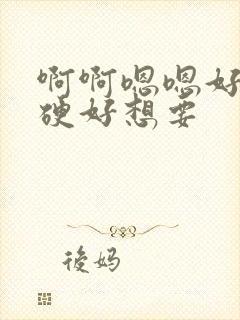 啊啊嗯嗯好
硬好想要
後妈